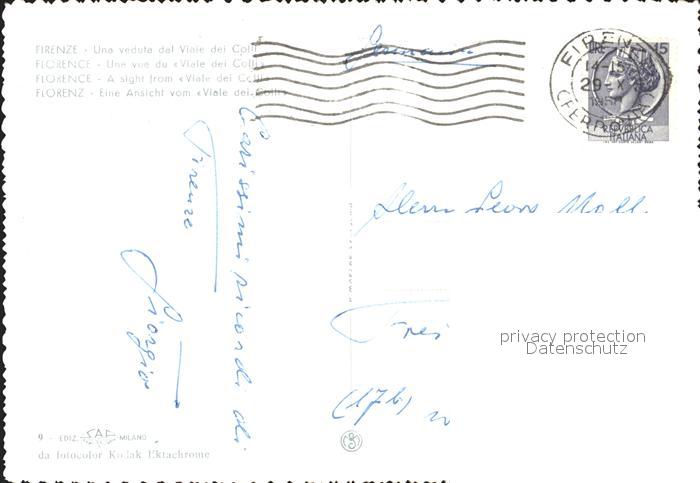 FIRENZE - Una veduta dal Viale dei Colli
FLORENCE - Une vue du «Viale dei Colli»
FLORENCE - A sight from «Viale dei Colli»
FLORENZ - Eine Ansicht vom «Viale dei Colli»
Germania
FIRENZE
FERROVIA
29
LIRE 15
REPUBBLICA
ITALIANA
Carissimi ricordi di
Firenze
Giorgio
Herrn Leons Moll.
Frei
(17b)
privacy protection
Datenschutz
9 - EDIZ. SAF - MILANO
da fotocolor Kodak Ektachrome